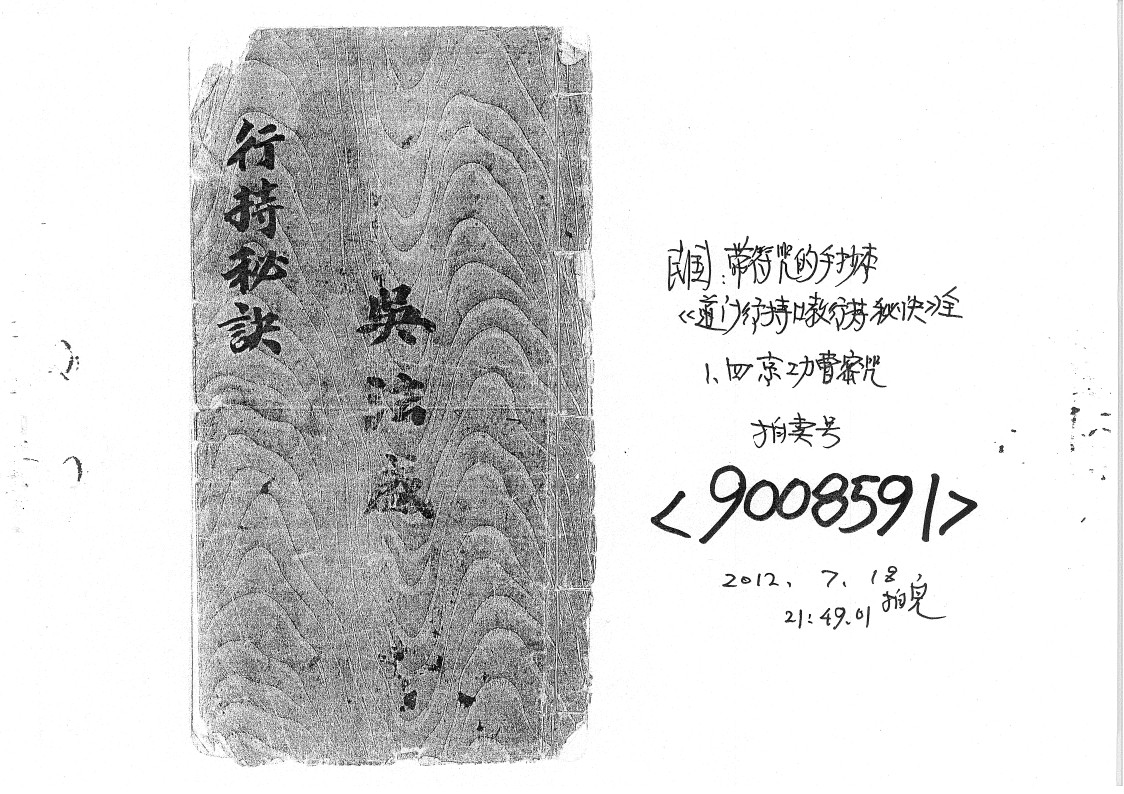 行持秘訣
吳法
民国:带符咒的手抄本
《道门行持口教行持秘诀》全
1、四京功曹密咒
拍卖号
<9008591>
2012、7、18
21:49.01 拍完